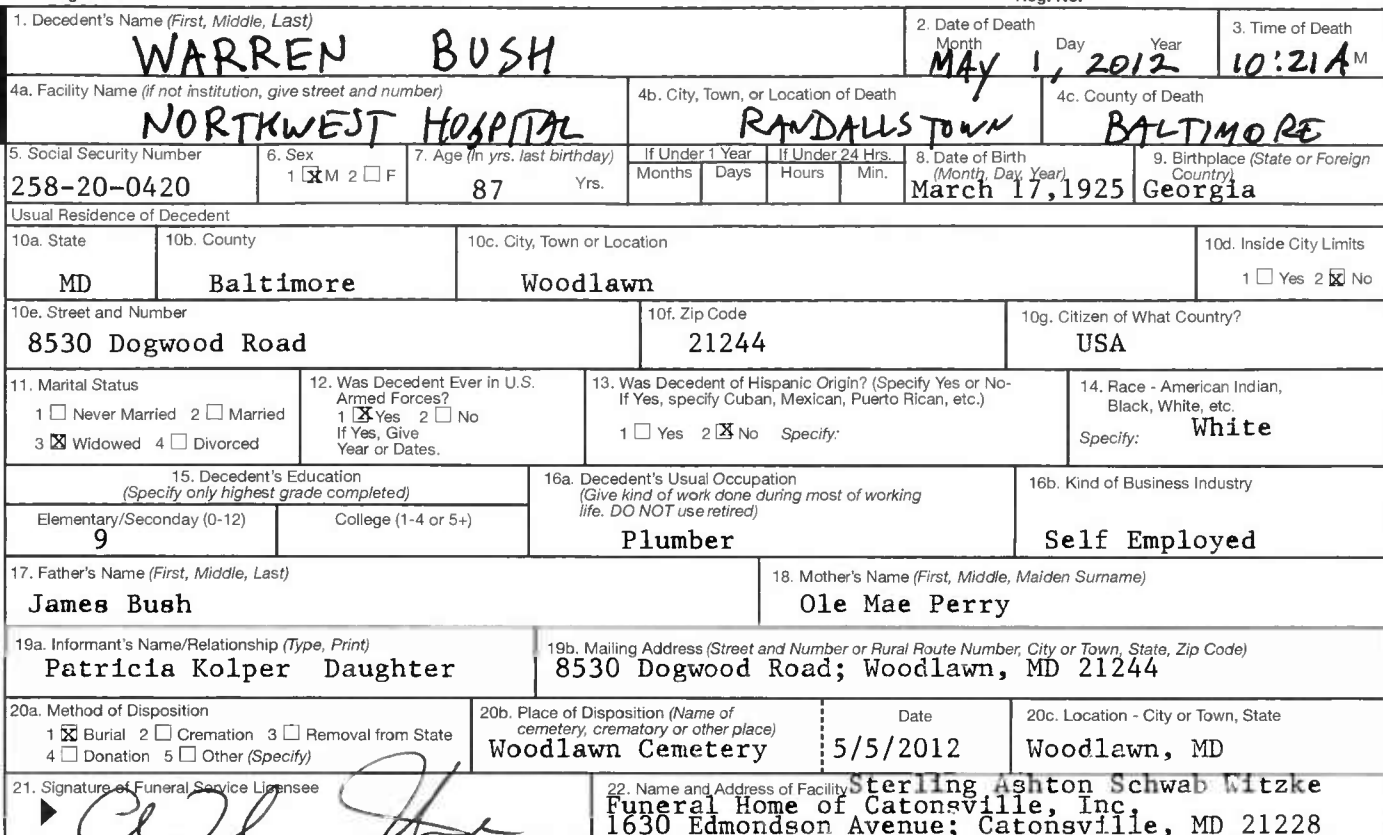 1. Decedent's Name (First, Middle, Last)
WARREN BUSH
2. Date of Death
Month Day Year
MAY 1, 2012
3. Time of Death
10:21 A M
4a. Facility Name (if not institution, give street and number)
NORTHWEST HOSPITAL
4b. City, Town, or Location of Death
RANDALLSTOWN
4c. County of Death
BALTIMORE
5. Social Security Number
258-20-0420
6. Sex
1 ☒ M 2 ☐ F
7. Age (In yrs. last birthday)
87 Yrs.
If Under 1 Year
Months Days
If Under 24 Hrs.
Hours Min.
8. Date of Birth
(Month, Day, Year)
March 17,1925
9. Birthplace (State or Foreign
Country)
Georgia
Usual Residence of Decedent
10a. State
MD
10b. County
Baltimore
10c. City, Town or Location
Woodlawn
10d. Inside City Limits
1 ☐ Yes 2 ☒ No
10e. Street and Number
8530 Dogwood Road
10f. Zip Code
21244
10g. Citizen of What Country?
USA
11. Marital Status
1 ☐ Never Married 2 ☐ Married
3 ☒ Widowed 4 ☐ Divorced
12. Was Decedent Ever in U.S.
Armed Forces?
1 ☒ Yes 2 ☐ No
If Yes, Give
Year or Dates.
13. Was Decedent of Hispanic Origin? (Specify Yes or No-
If Yes, specify Cuban, Mexican, Puerto Rican, etc.)
1 ☐ Yes 2 ☒ No Specify:
14. Race - American Indian,
Black, White, etc.
Specify: White
15. Decedent's Education
(Specify only highest grade completed)
Elementary/Seconday (0-12)
9
College (1-4 or 5+)
16a. Decedent's Usual Occupation
(Give kind of work done during most of working
life. DO NOT use retired)
Plumber
16b. Kind of Business Industry
Self Employed
17. Father's Name (First, Middle, Last)
James Bush
18. Mother's Name (First, Middle, Maiden Surname)
Ole Mae Perry
19a. Informant's Name/Relationship (Type, Print)
Patricia Kolper Daughter
19b. Mailing Address (Street and Number or Rural Route Number, City or Town, State, Zip Code)
8530 Dogwood Road; Woodlawn, MD 21244
20a. Method of Disposition
1 ☒ Burial 2 ☐ Cremation 3 ☐ Removal from State
4 ☐ Donation 5 ☐ Other (Specify)
20b. Place of Disposition (Name of
cemetery, crematory or other place)
Woodlawn Cemetery
Date
5/5/2012
20c. Location - City or Town, State
Woodlawn, MD
21. Signature of Funeral Service Licensee
22. Name and Address of Facility Sterling Ashton Schwab Witzke
Funeral Home of Catonsville, Inc.
1630 Edmondson Avenue; Catonsville, MD 21228